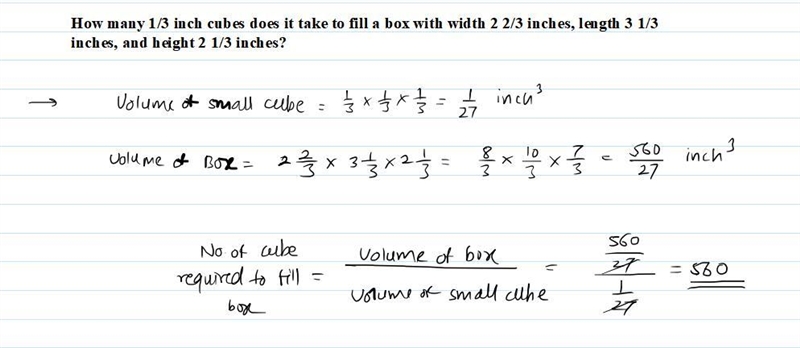 How many 1/3 inch cubes does it take to fill a box with width 2 2/3 inches, length 3 1/3
inches, and height 2 1/3 inches?
→ Volume of small cube = 1/3 × 1/3 × 1/3 = 1/27 inch³
Volume of Box = 2 2/3 × 3 1/3 × 2 1/3 = 8/3 × 10/3 × 7/3 = 560/27 inch³
No of cube required to fill box = Volume of box / Volume of small cube = (560/27) / (1/27) = 560